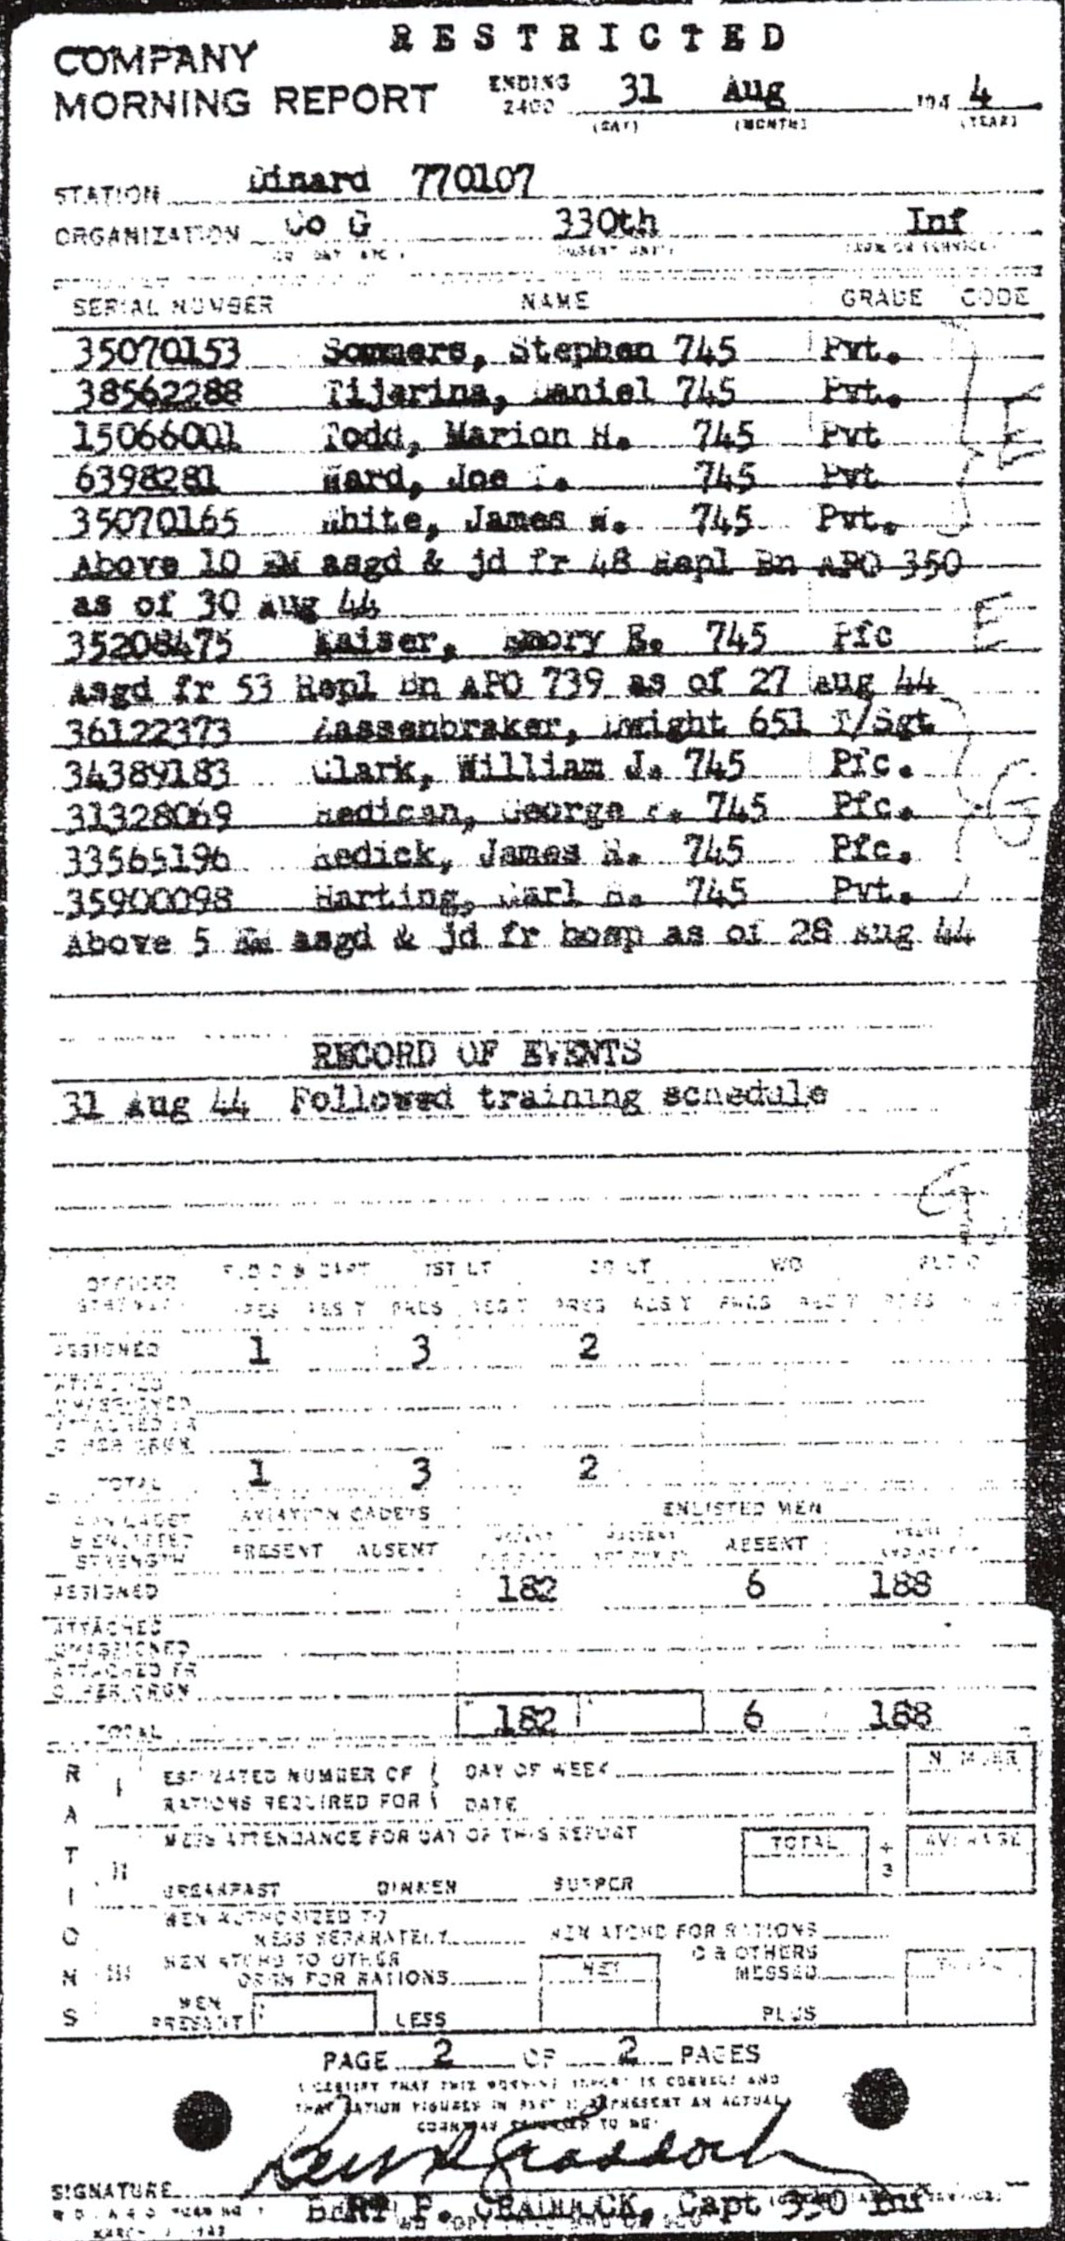 RESTRICTED
COMPANY
MORNING REPORT ENDING 2400 31 Aug 194 4
(DAY) (MONTH) (YEAR)
STATION Dinard 770107
ORGANIZATION Co G 330th Inf
SERIAL NUMBER NAME GRADE CODE
35070153 Sommers, Stephen 745 Pvt.
38562288 Tijerina, Daniel 745 Pvt.
15066001 Todd, Marion H. 745 Pvt E
6398281 Ward, Joe 745 Pvt
35070165 White, James W. 745 Pvt.
Above 10 EM asgd & jd fr 48 Repl Bn APO 350
as of 30 Aug 44
35208475 Kaiser, Emory E. 745 Pfc E
Asgd fr 53 Repl Bn APO 739 as of 27 Aug 44
36122373 Dwight 651 T/Sgt
34389183 Clark, William J. 745 Pfc.
31328069 George 745 Pfc. G
33565196 James R. 745 Pfc.
35900098 Harting, 745 Pvt.
Above 5 EM asgd & jd fr hosp as of 28 Aug 44
RECORD OF EVENTS
31 Aug 44 Followed training schedule
G
OFFICER STRENGTH FLD O & CAPT 1ST LT 2D LT WO FLT O
PRES ABS'T PRES ABS'T PRES ABS'T PRES ABS'T PRES
ASSIGNED 1 3 2
ATTACHED
UNASSIGNED
ATTACHED FR
OTHER ORGN
TOTAL 1 3 2
AVIATION CADETS ENLISTED MEN
STRENGTH PRESENT ABSENT ABSENT
ASSIGNED 182 6 188
ATTACHED
UNASSIGNED
ATTACHED FR
OTHER ORGN
TOTAL 182 6 188
RATIONS
I ESTIMATED NUMBER OF DAY OF WEEK NUMBER
RATIONS REQUIRED FOR DATE
II MESS ATTENDANCE FOR DAY OF THIS REPORT TOTAL ÷ 3 AVERAGE
BREAKFAST DINNER SUPPER
III MEN AUTHORIZED TO
MESS SEPARATELY MEN ATCHD FOR RATIONS
MEN ATCHD TO OTHER
ORGN FOR RATIONS NET O & OTHERS
MESSED TOTAL
MEN
PRESENT LESS PLUS
PAGE 2 OF 2 PAGES
I CERTIFY THAT THIS MORNING REPORT IS CORRECT AND
THAT RATION FIGURES IN PART II REPRESENT AN ACTUAL
COUNT AS REPORTED TO ME
SIGNATURE
BERT P. CRADDOCK, Capt 330 Inf